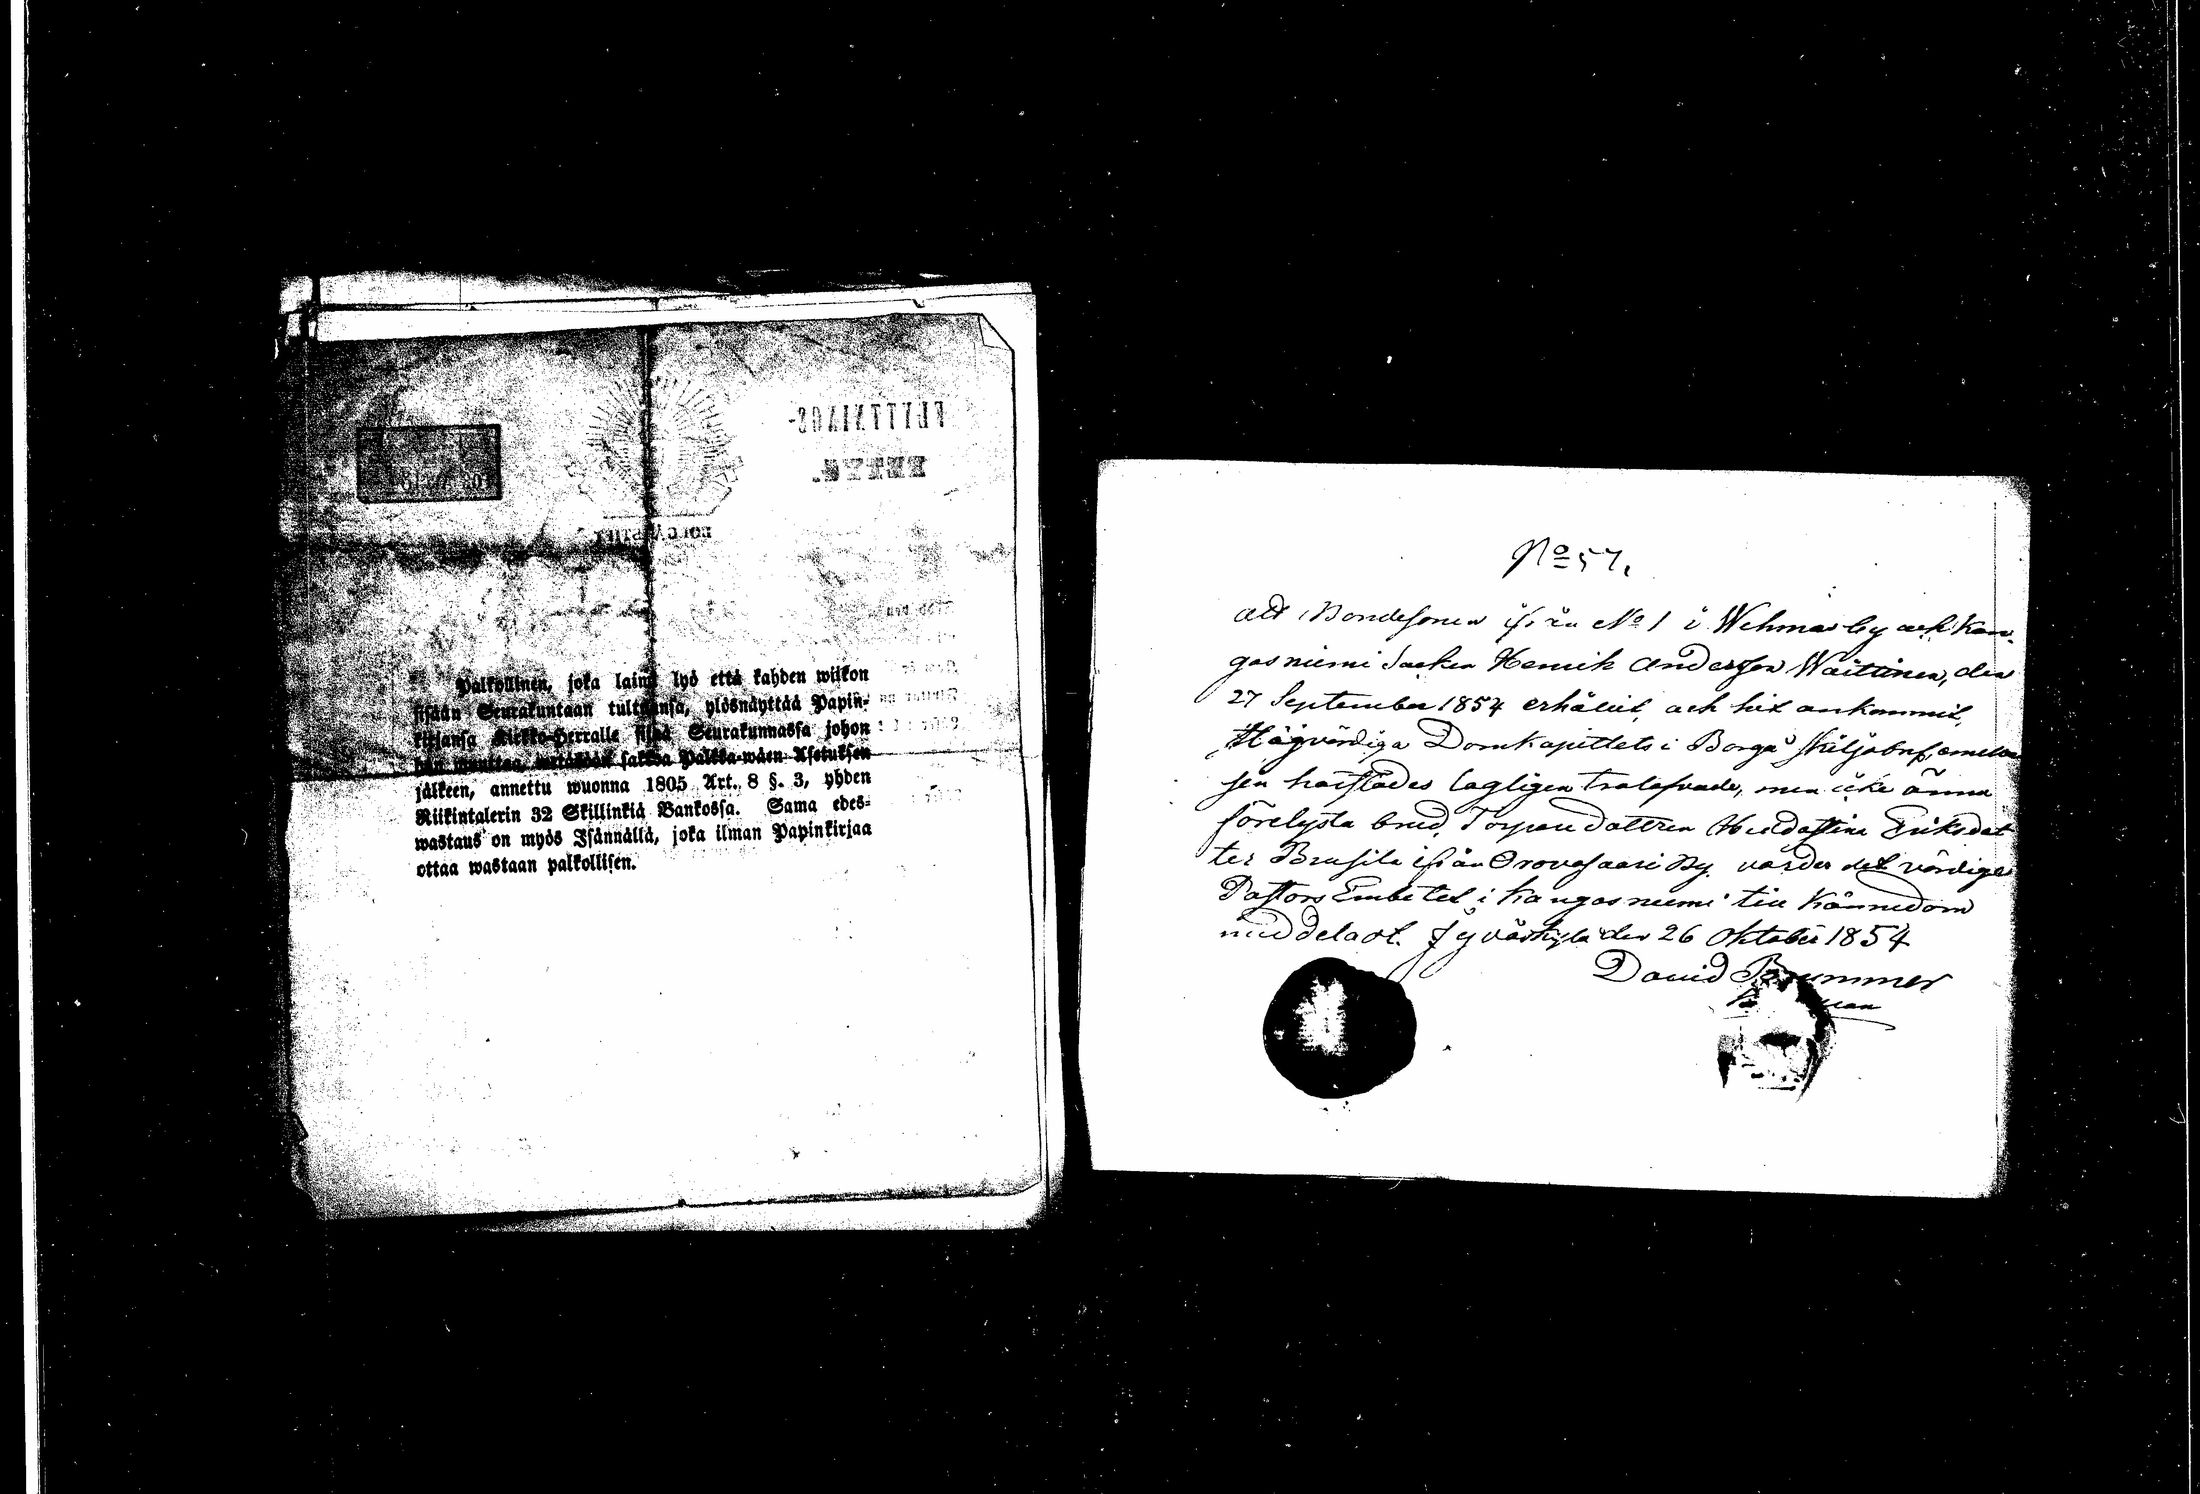 Palkollinen, joka lainä lyö että kahden wiikon
sisään Seurakuntaan tultuansa, ylösnäyttää Papin-
kirjansa Kirkko-Herralle siinä Seurakunnassa johon
hän muuttaa, wetäköön sakkoa Palkka-wäen Asetuksen
jälkeen, annettu wuonna 1805 Art. 8 §. 3, yhden
Riikintalerin 32 Skillinkiä Bankossa. Sama edes-
wastaus on myös Isännällä, joka ilman Papinkirjaa
ottaa wastaan palkollisen.
No 57.
Att Bondesonen ifrån No 1 i Wehmas by och Kan-
gasniemi Socken Henrik Andersson Waittinen, den
27 September 1854 erhållit, och hit ankommit,
Högvördiga Domkapitlets i Borgå Skiljobref, emellan
sen härstädes lagligen trolofvade, men icke ännu
förelysta brud, Torpardottren Eriksdot
ter Brusila ifrån Orovasaari By, varder det vördige
Pastors Embetet i Kangasniemi till kännedom
meddeladt. Jyväskylä den 26 Oktober 1854
David Brummer